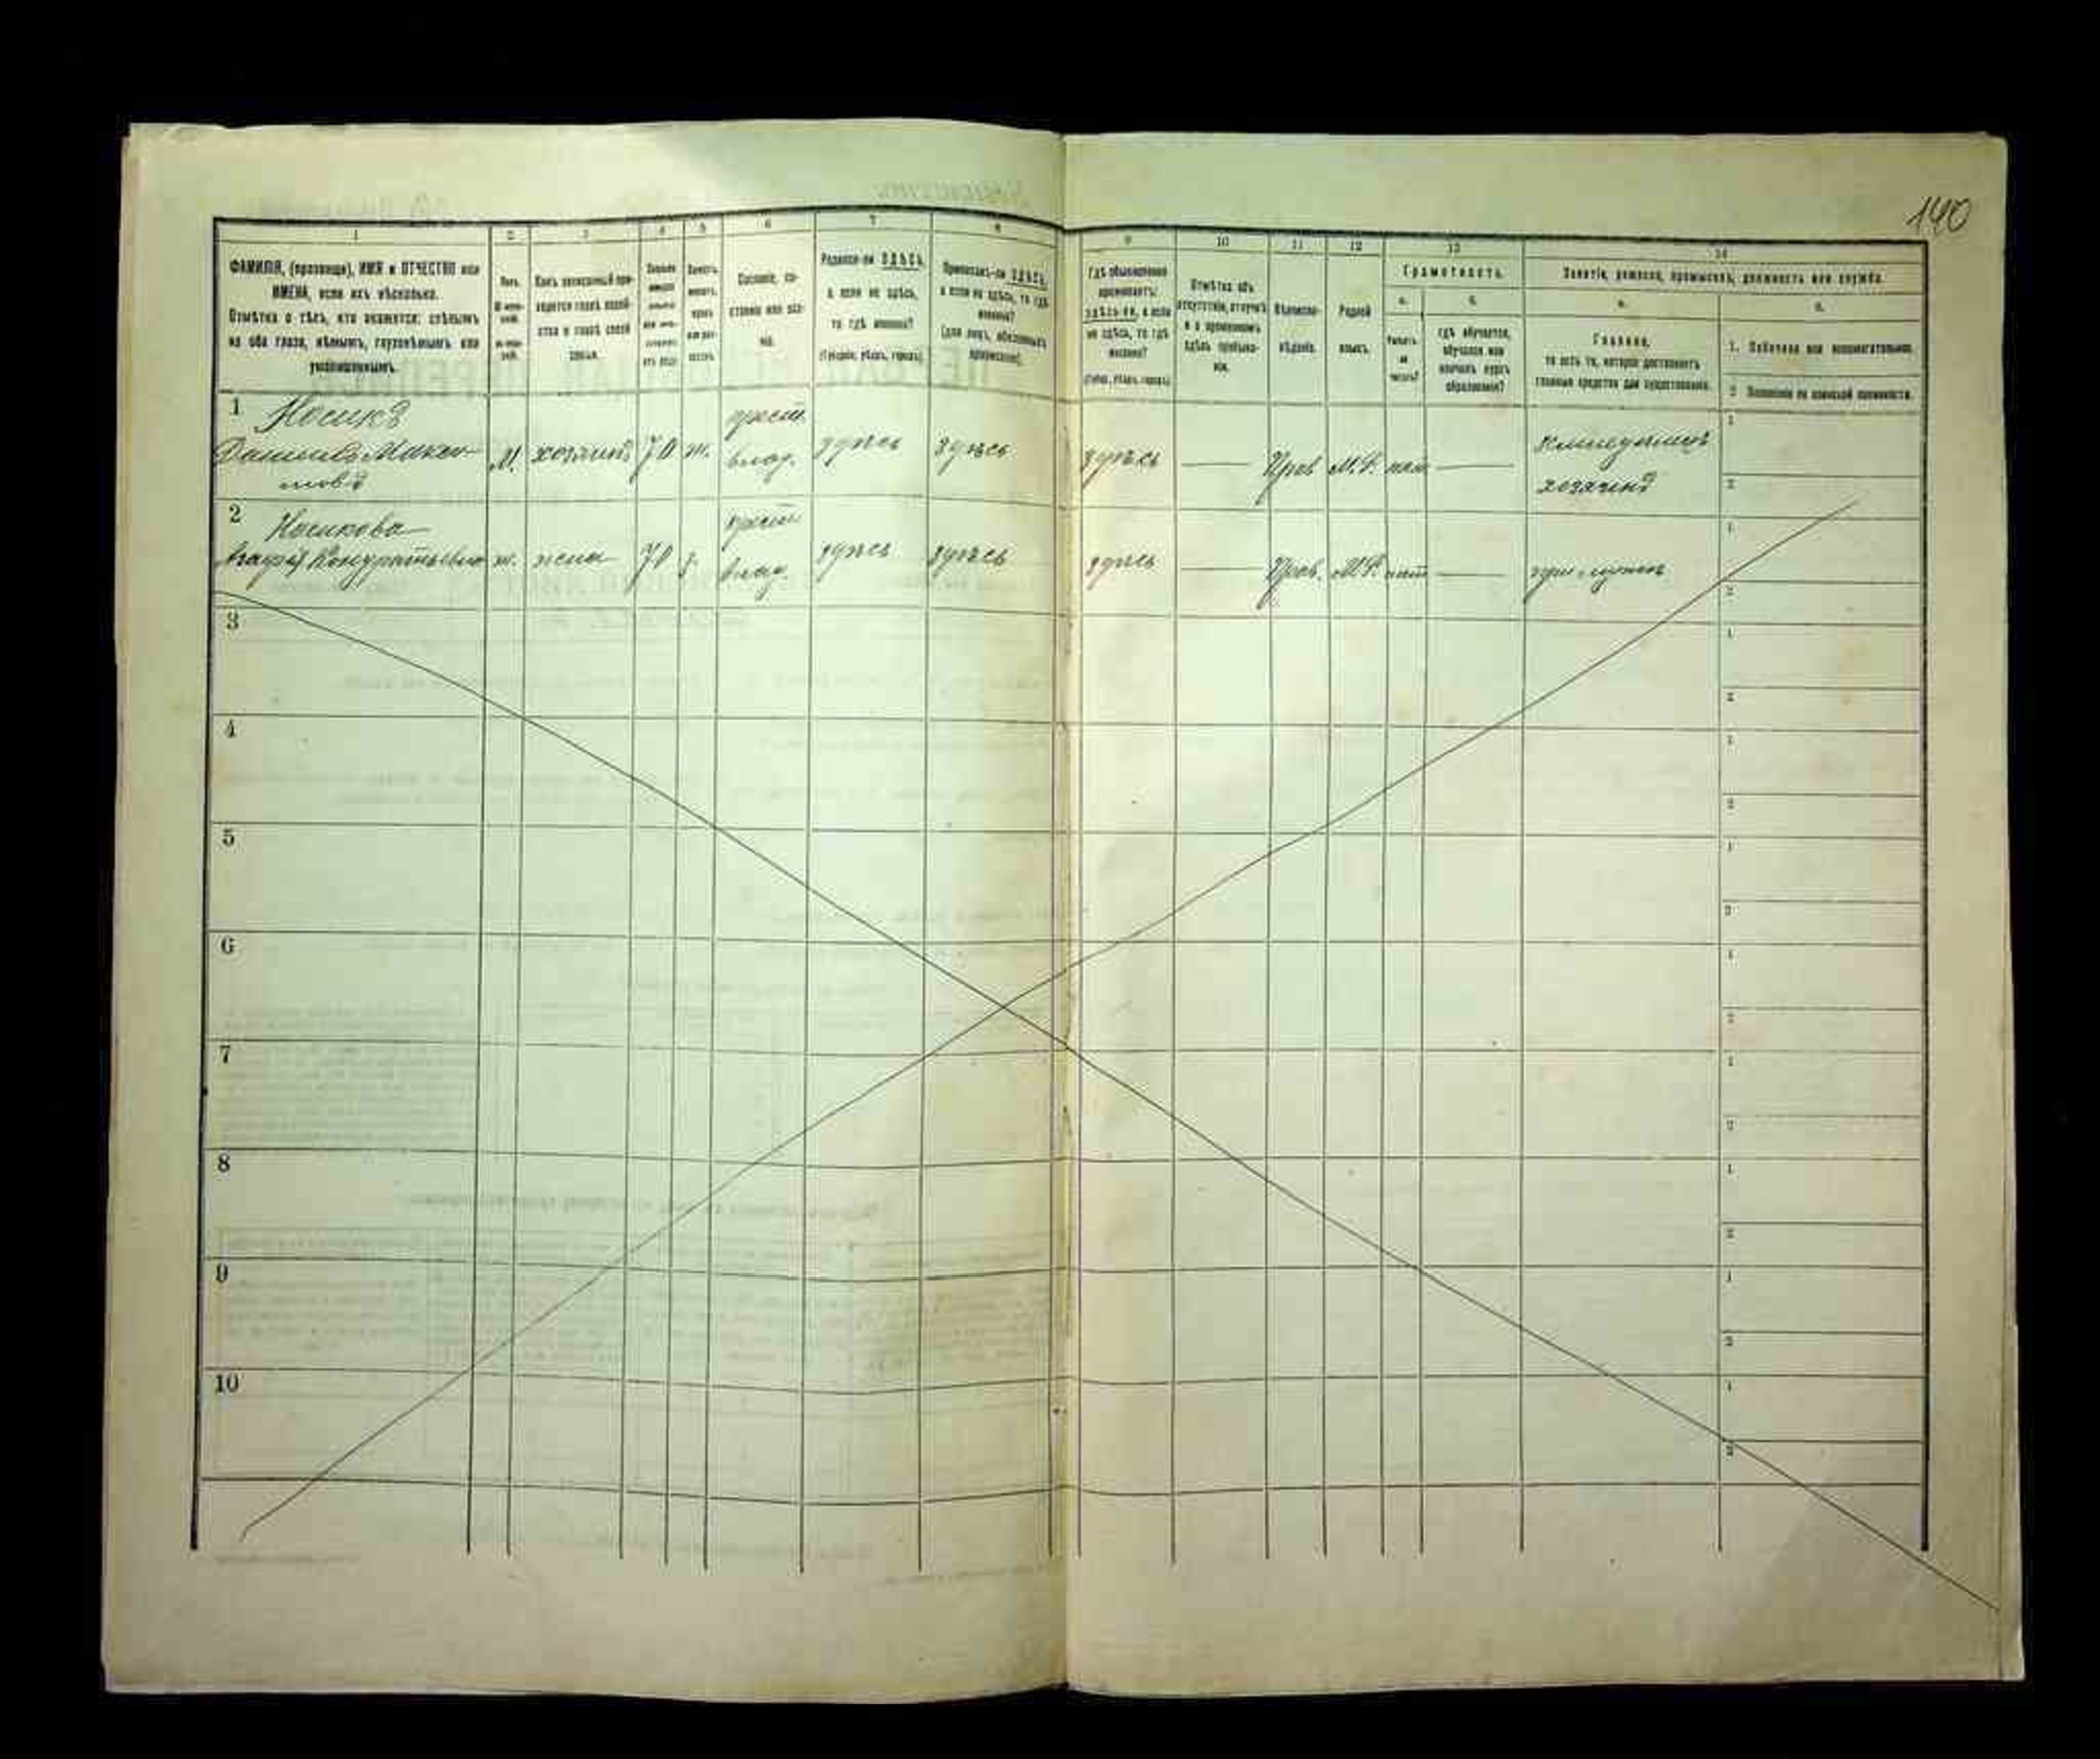 140
1
2
3
4
5
6
7
8
9
10
11
12
13
14
ФАМИЛІЯ, (прозвище), ИМЯ и ОТЧЕСТВО или
ИМЕНА, если ихъ нѣсколько.
Отмѣтка о тѣхъ, кто окажется: слѣпымъ
на оба глаза, нѣмымъ, глухонѣмымъ или
умалишеннымъ.
Полъ.
Какъ записанный при-
ходится главѣ хозяй-
ства и главѣ своей
семьи.
Сословіе, со-
стояніе или зва-
ніе.
Родился-ли ЗДѢСЬ,
а если не здѣсь,
то гдѣ именно?
(Губернія, уѣздъ, городъ).
Приписанъ-ли ЗДѢСЬ,
а если не здѣсь, то гдѣ
именно?
(для лицъ, обязанныхъ
припискою).
Гдѣ обыкновенно
проживаетъ:
здѣсь-ли, а если
не здѣсь, то гдѣ
именно?
(Губер., уѣздъ, городъ).
Отмѣтка объ
отсутствіи, отлучкѣ
и о временномъ
здѣсь пребыва-
ніи.
Вѣроиспо-
вѣданіе.
Родной
языкъ.
Грамотность.
а.
б.
Умѣетъ
ли
читать?
гдѣ обучается,
обучался или
кончилъ курсъ
образованія?
Занятіе, ремесло, промыселъ, должность или служба.
а.
б.
Главное,
то есть то, которое доставляетъ
главныя средства для существованія.
1. Побочное или вспомогательное.
2. Положеніе по воинской повинности.
1 Носикъ
Даніилъ Макси-
мовъ
М. хозяинъ 70 ж. крест. влад. здѣсь здѣсь здѣсь — Прав М.Р. нѣт —
Земледѣлецъ
хозяинъ
2 Носикова
Агафія Кондратьевна ж. жена 70 з. крест влад. здѣсь здѣсь здѣсь — Прав. М.Р. нѣт — при мужѣ
3
4
5
6
7
8
9
10